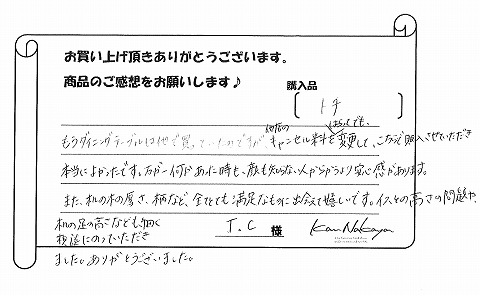 お買い上げ頂きありがとうございます。
商品のご感想をお願いします♪
購入品
トチ
もうダイニングテーブルは他で買っていたのですが、他店のキャンセル料を払ってでも、変更して、こちらで購入させていただき
本当によかったです。万が一何かあった時も、顔も知らない人からかうより安心感があります。
また、机の木の厚さ、柄など、全てとても満足なものに出会えて嬉しいです。イスとの高さの問題や、
机の足の高さなども細く
相談にのっていただき
ましたありがとうございました。
J.C 様
Kan Nakaya